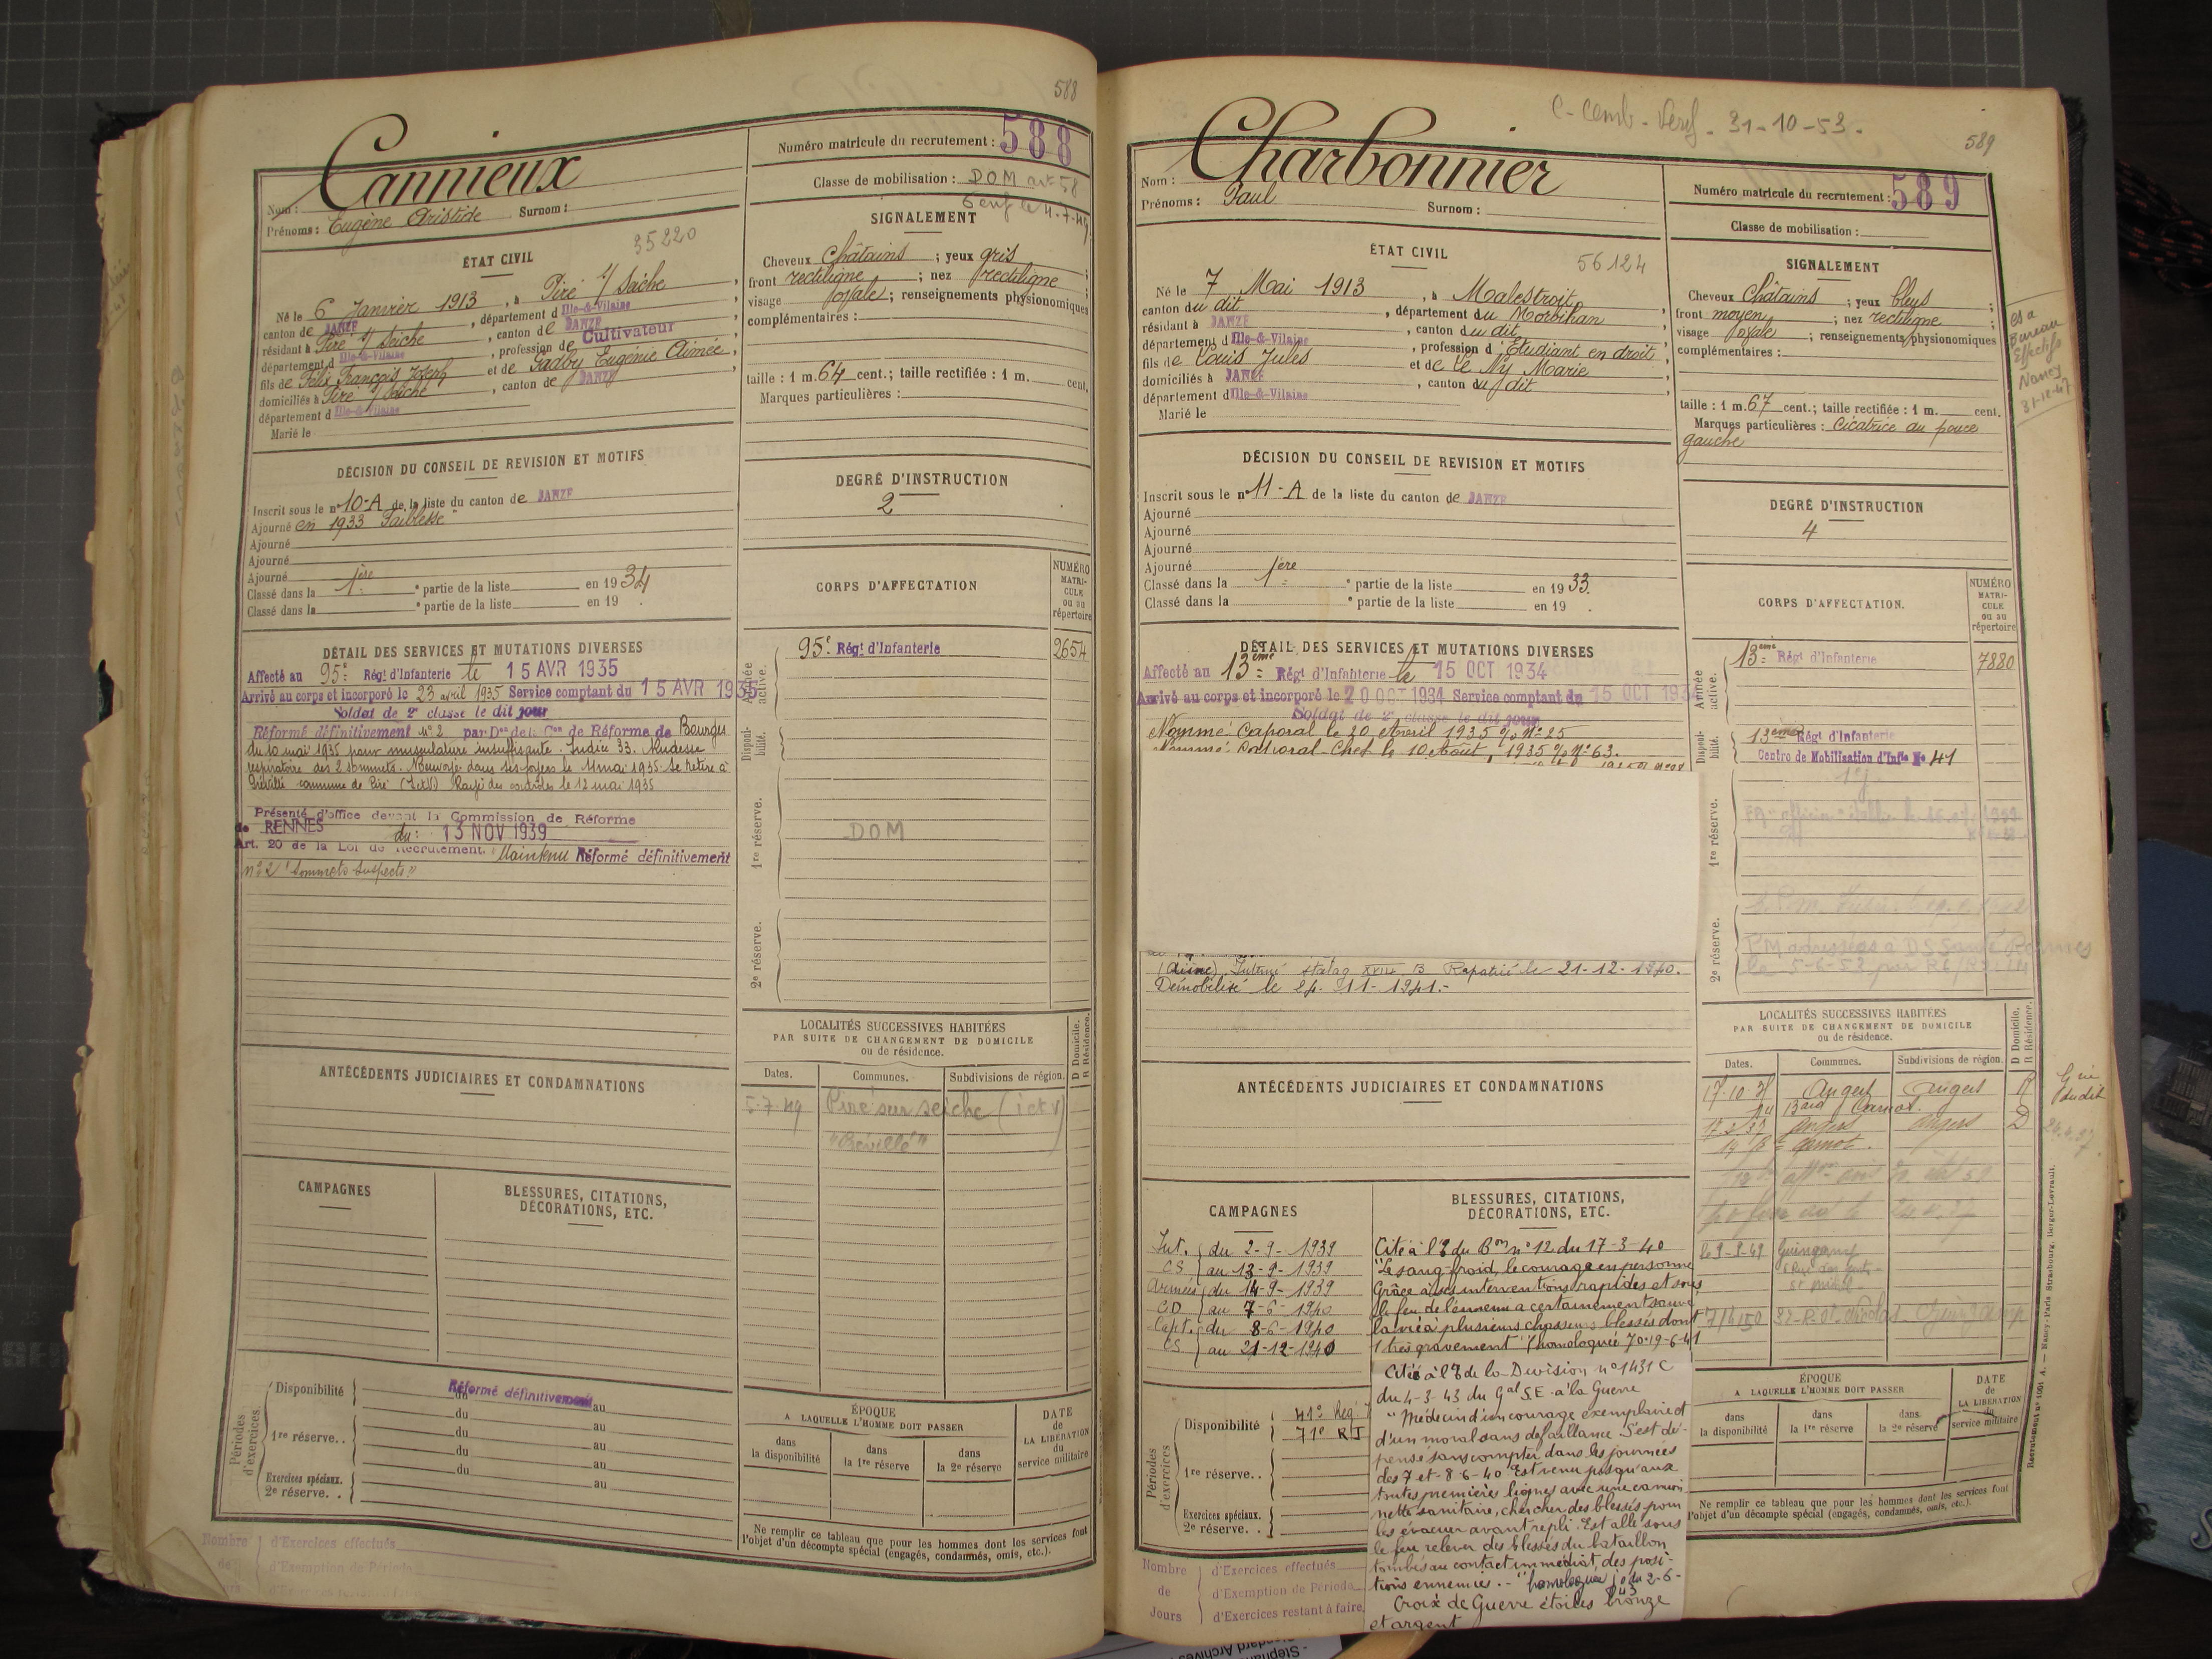 588
Cannieux
Nom :
Prénoms : Eugène Aristide Surnom :
Numéro matricule du recrutement : 588
Classe de mobilisation : DOM art 58
35220
ÉTAT CIVIL
Né le 6 Janvier 1913, à Piré s/ Seiche,
canton de JANZE, département d Ille-&-Vilaine
résidant à Piré s/ Seiche, canton de JANZE
département d Ille-&-Vilaine, profession de Cultivateur
fils de Félix François Joseph et de Gadby Eugénie Aimée,
domiciliés à Piré s/ Seiche, canton de JANZE,
département d Ille-&-Vilaine
Marié le
SIGNALEMENT
Cheveux Châtains ; yeux gris ;
front rectiligne ; nez rectiligne ;
visage ovale ; renseignements physionomiques
complémentaires :
taille : 1 m. 64 cent.; taille rectifiée : 1 m. cent.
Marques particulières :
DÉCISION DU CONSEIL DE REVISION ET MOTIFS
Inscrit sous le n° 10-A de la liste du canton de JANZE
Ajourné en 1933 Faiblesse
Ajourné
Ajourné
Ajourné
Classé dans la 1ère partie de la liste en 1934
Classé dans la e partie de la liste en 19 .
DEGRÉ D'INSTRUCTION
2
CORPS D'AFFECTATION
NUMÉRO MATRICULE ou au répertoire
DÉTAIL DES SERVICES ET MUTATIONS DIVERSES
Affecté au 95e Régt d'Infanterie le 15 AVR 1935
Arrivé au corps et incorporé le 23 avril 1935 Service comptant du 15 AVR 1935
Soldat de 2e classe le dit jour
Réformé définitivement n° 2 par Don de la Con de Réforme de Bourges
du 10 mai 1935 pour musculature insuffisante. Indice 33. Rudesse
respiratoire des 2 sommets. Renvoyé dans ses foyers le 11 mai 1935. Se retire à
commune de Piré (I et V) Rayé des contrôles le 12 mai 1935
Présenté d'office devant la Commission de Réforme
de RENNES du : 13 NOV 1939
Art. 20 de la Loi de Recrutement. Maintenu Réformé définitivement
n° 2 "Sommets suspects"
Armée active.
95e Régt d'Infanterie 2654
Disponibilité.
1re réserve.
DOM
2e réserve.
LOCALITÉS SUCCESSIVES HABITÉES
PAR SUITE DE CHANGEMENT DE DOMICILE
ou de résidence.
D Domicile. R Résidence.
Dates. Communes. Subdivisions de région.
5-7-49 Piré sur Seiche (I et V)
ANTÉCÉDENTS JUDICIAIRES ET CONDAMNATIONS
CAMPAGNES
BLESSURES, CITATIONS,
DÉCORATIONS, ETC.
Périodes d'exercices.
Disponibilité Réformé définitivement du au
1re réserve. . du au
du au
du au
Exercices spéciaux.
2e réserve. . du au
ÉPOQUE
A LAQUELLE L'HOMME DOIT PASSER
dans la disponibilité
dans la 1re réserve
dans la 2e réserve
DATE de LA LIBÉRATION du service militaire
Ne remplir ce tableau que pour les hommes dont les services font
l'objet d'un décompte spécial (engagés, condamnés, omis, etc.).
Nombre d'Exercices effectués
de d'Exemption de Période
589
31-10-53.
Charbonnier
Nom :
Prénoms : Paul Surnom :
Numéro matricule du recrutement : 589
Classe de mobilisation :
56124
ÉTAT CIVIL
Né le 7 Mai 1913, à Malestroit,
canton du dit, département du Morbihan
résidant à JANZE, canton du dit,
département d Ille-&-Vilaine, profession d'Etudiant en droit,
fils de Louis Jules et de Le Ny Marie,
domiciliés à JANZE, canton du dit,
département d Ille-&-Vilaine
Marié le
SIGNALEMENT
Cheveux Châtains ; yeux bleus ;
front moyen ; nez rectiligne ;
visage ovale ; renseignements physionomiques
complémentaires :
taille : 1 m. 67 cent.; taille rectifiée : 1 m. cent.
Marques particulières : Cicatrice au pouce
gauche
Bureau
Effectifs
Nancy
31-12-47
DÉCISION DU CONSEIL DE REVISION ET MOTIFS
Inscrit sous le n° 11-A de la liste du canton de JANZE
Ajourné
Ajourné
Ajourné
Ajourné
Classé dans la 1ere partie de la liste en 1933.
Classé dans la e partie de la liste en 19 .
DEGRÉ D'INSTRUCTION
4
CORPS D'AFFECTATION.
NUMÉRO MATRICULE ou au répertoire
DÉTAIL DES SERVICES ET MUTATIONS DIVERSES
Affecté au 13ème Régt d'Infanterie le 15 OCT 1934
Arrivé au corps et incorporé le 20 OCT 1934 Service comptant du 15 OCT 1934
Soldat de 2e classe le dit jour
Nommé Caporal le 20 Avril 1935 % N° 25
Nommé Caporal-Chef le 10 Août 1935 % N° 63.
(Aisne) Interné stalag XVII B Rapatrié le 21-12-1940.
Démobilisé le 24-11-1941.-
Armée active.
13ème Régt d'Infanterie 7880
Disponibilité.
13ème Régt d'Infanterie
Centre de Mobilisation d'Infie N° 41
1re réserve.
2e réserve.
LOCALITÉS SUCCESSIVES HABITÉES
PAR SUITE DE CHANGEMENT DE DOMICILE
ou de résidence.
D Domicile. R Résidence.
Dates. Communes. Subdivisions de région.
Angers Angers R
Bard Carnot.
Angers Angers D
Carnot.
Guingamp
ANTÉCÉDENTS JUDICIAIRES ET CONDAMNATIONS
CAMPAGNES
Int. du 2-9-1939
CS au 13-9-1939
Armées du 14-9-1939
CD au 7-6-1940
Capt. du 8-6-1940
CS au 21-12-1940
BLESSURES, CITATIONS,
DÉCORATIONS, ETC.
Cité à l'O du Bon n° 12 du 17-3-40
"Le sang-froid, le courage en personne
Grâce à ses interventions rapides et sous
le feu de l'ennemi a certainement sauvé
la vie à plusieurs chasseurs blessés dont
1 très gravement" (homologuée JO 19-6-41
Cité à l'O de la Division n° 1431 C
du 4-3-43 du Gal S.E. à la Guerre
"Médecin d'un courage exemplaire et
d'un moral sans défaillance. S'est dé-
pensé sans compter dans les journées
des 7 et 8-6-40 Est venu jusqu'aux
toutes premières lignes avec une camion-
nette sanitaire, chercher des blessés pour
les évacuer avant repli. Est allé sous
le feu relever des blessés du bataillon
tombés au contact immédiat des posi-
tions ennemies.-" homologuée jo du 2-6-
43
Croix de Guerre étoiles bronze
et argent
Périodes d'exercices.
Disponibilité 41e Reg.
71e RI
1re réserve. .
Exercices spéciaux.
2e réserve. .
ÉPOQUE
A LAQUELLE L'HOMME DOIT PASSER
dans la disponibilité
dans la 1re réserve
dans la 2e réserve
DATE de LA LIBÉRATION du service militaire
Ne remplir ce tableau que pour les hommes dont les services font
l'objet d'un décompte spécial (engagés, condamnés, omis, etc.).
Nombre d'Exercices effectués
de d'Exemption de Période
Jours d'Exercices restant à faire
Recrutement n° 1001 A. — Nancy-Paris Strasbourg. Berger-Levrault.